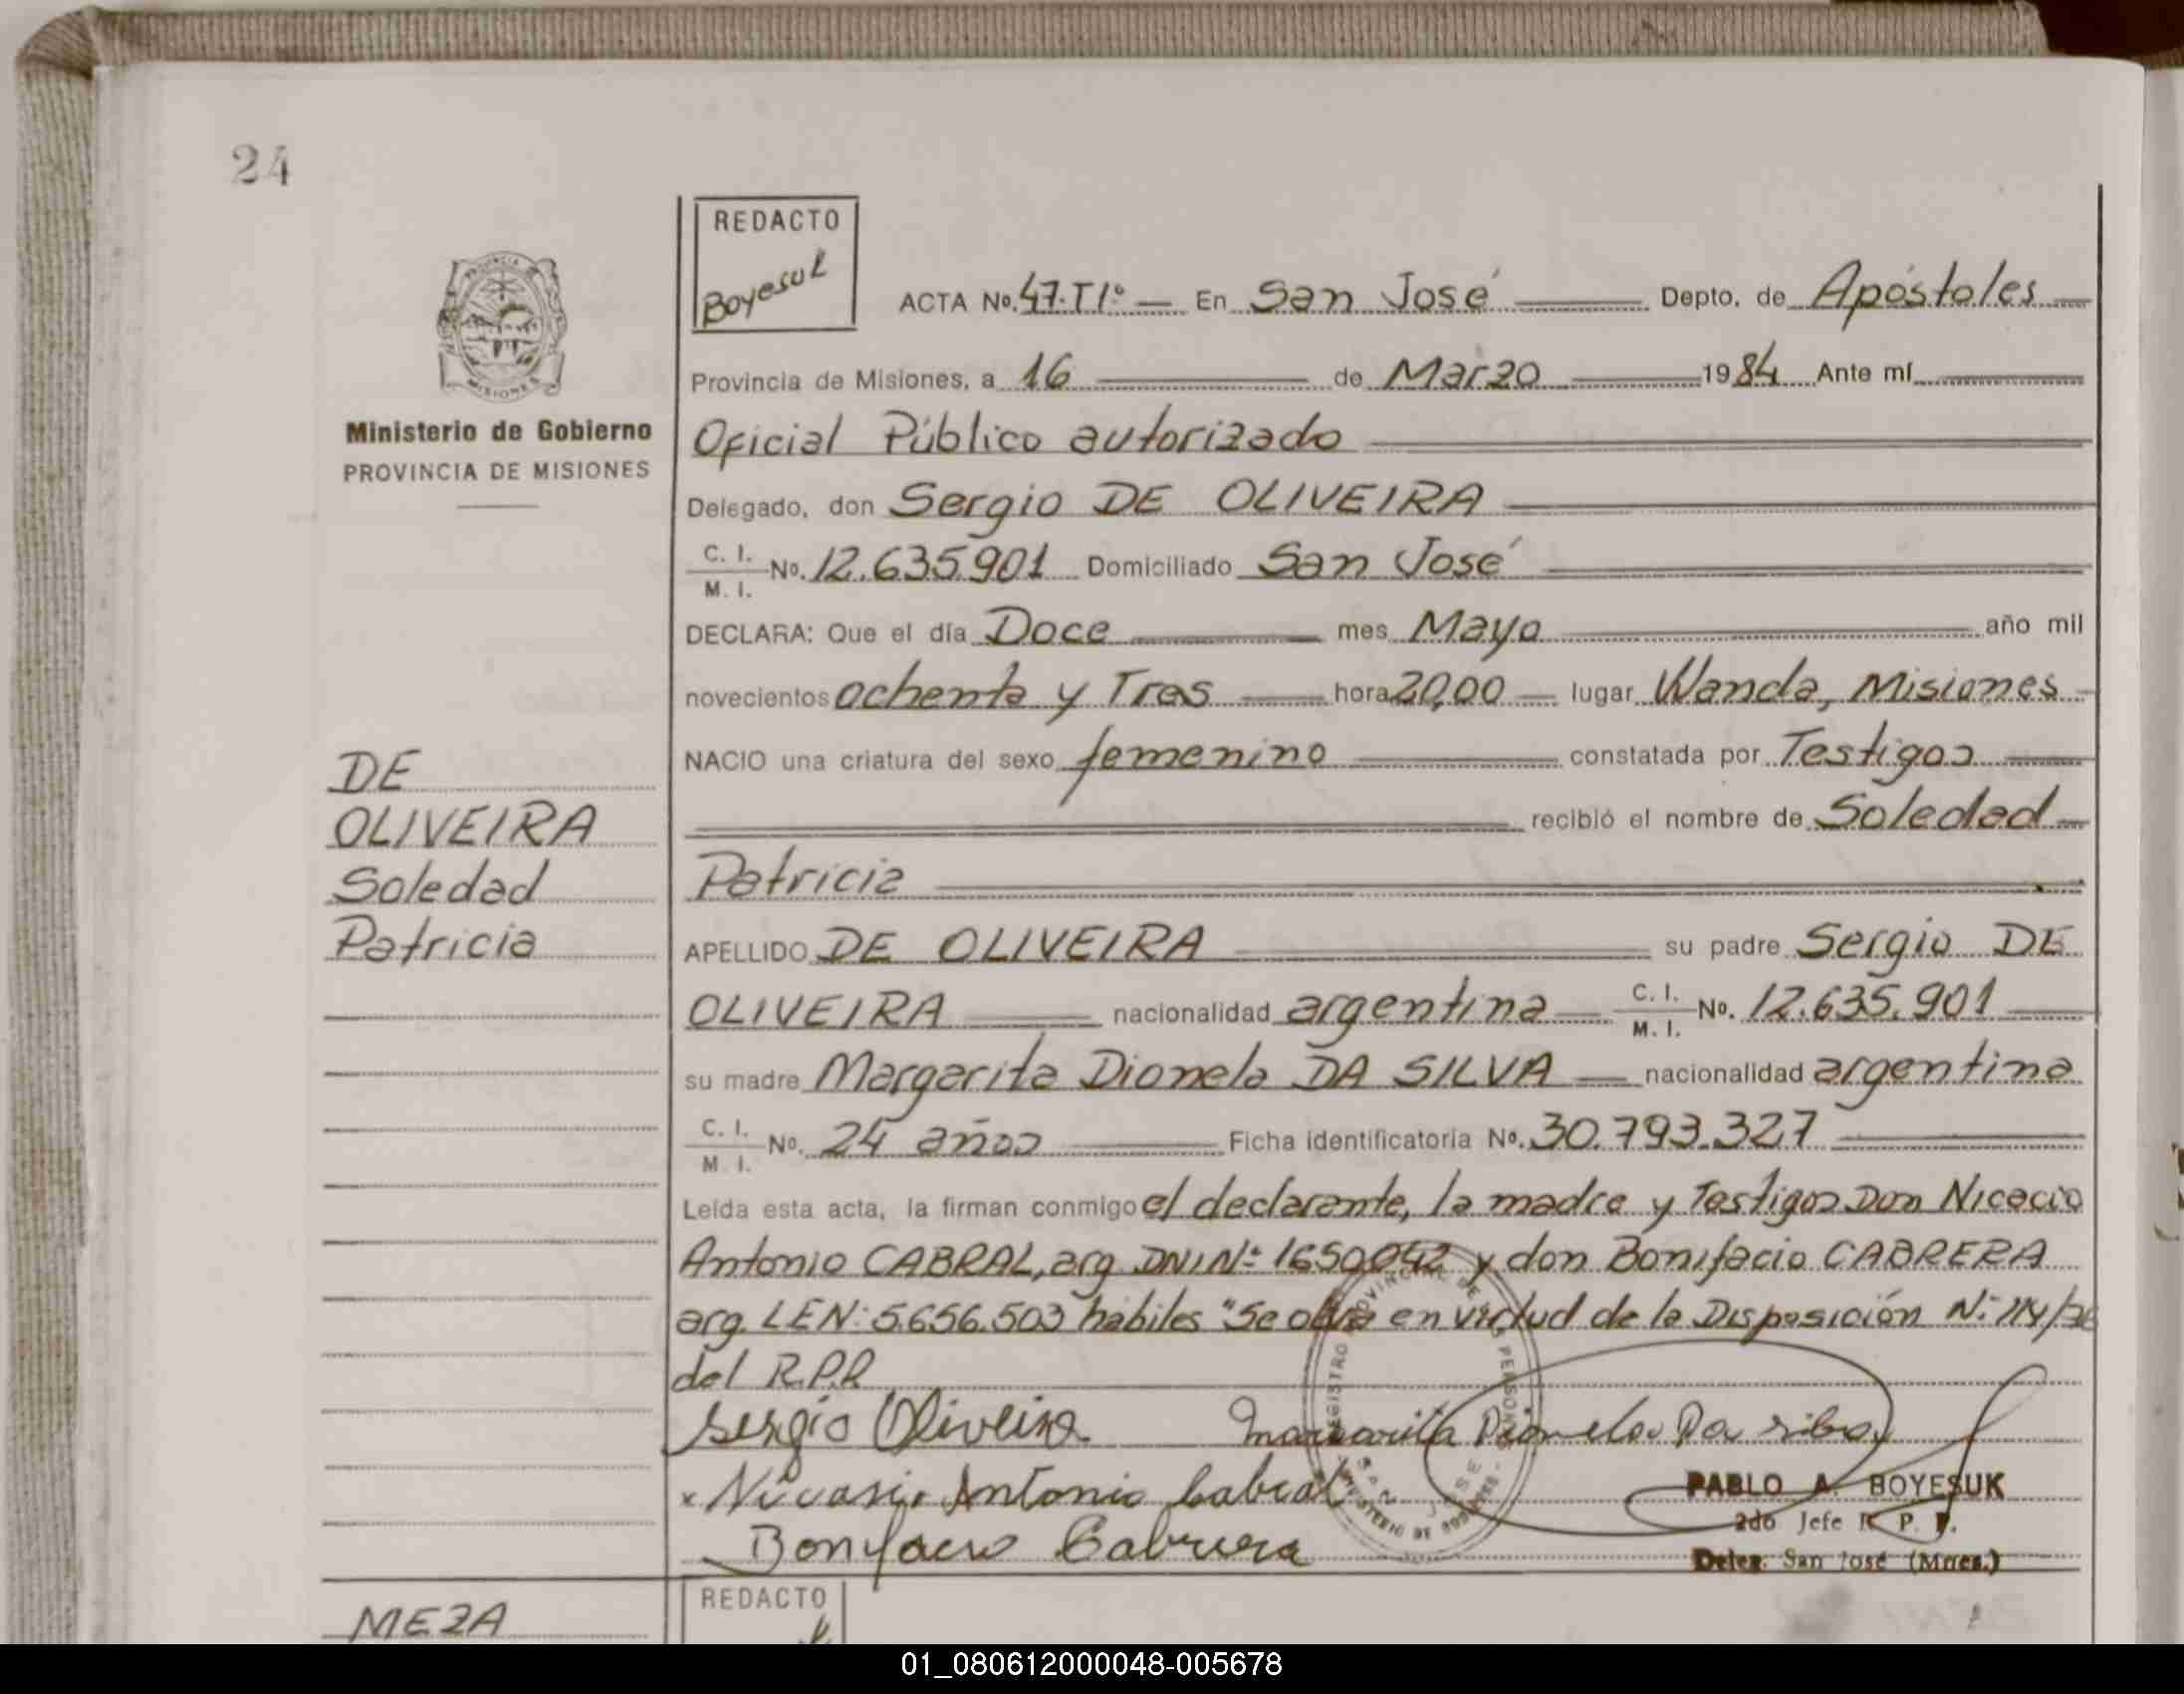 24
REDACTO
Boyesuk
PROVINCIA DE
MISIONES
ACTA No. 47.TIº En San José Depto. de Apóstoles
Provincia de Misiones, a 16 de Marzo 1984 Ante mí
Ministerio de Gobierno
PROVINCIA DE MISIONES
Oficial Público autorizado
Delegado, don Sergio DE OLIVEIRA
C. I.
M. I. No. 12.635.901 Domiciliado San José
DECLARA: Que el día Doce mes Mayo año mil
novecientos ochenta y Tres hora 20,00 lugar Wanda, Misiones
NACIO una criatura del sexo femenino constatada por Testigos
recibió el nombre de Soledad
Patricia
DE
OLIVEIRA
Soledad
Patricia
APELLIDO DE OLIVEIRA su padre Sergio DE
OLIVEIRA nacionalidad argentina C. I. M. I. No. 12.635.901
su madre Margarita Dionela DA SILVA nacionalidad argentina
C. I.
M. I. No. 24 años Ficha identificatoria No. 30.793.327
Leída esta acta, la firman conmigo el declarante, la madre y Testigos Don Nicacio
Antonio CABRAL, arg. DNI Nº 1650042 y don Bonifacio CABRERA
arg. LEN: 5.656.503 hábiles "Se obra en virtud de la Disposición Nº
del R.P.P.
Sergio Oliveira Margarita Dionela Da Silva
x Nicasio Antonio Cabral
Bonifacio Cabrera
REGISTRO PROVINCIAL DE PERSONAS
SAN JOSE
MINISTERIO DE GOBIERNO
PABLO A. BOYESUK
2do Jefe R. P. P.
Deleg. San José (Mnes.)
REDACTO
MEZA
01_080612000048-005678